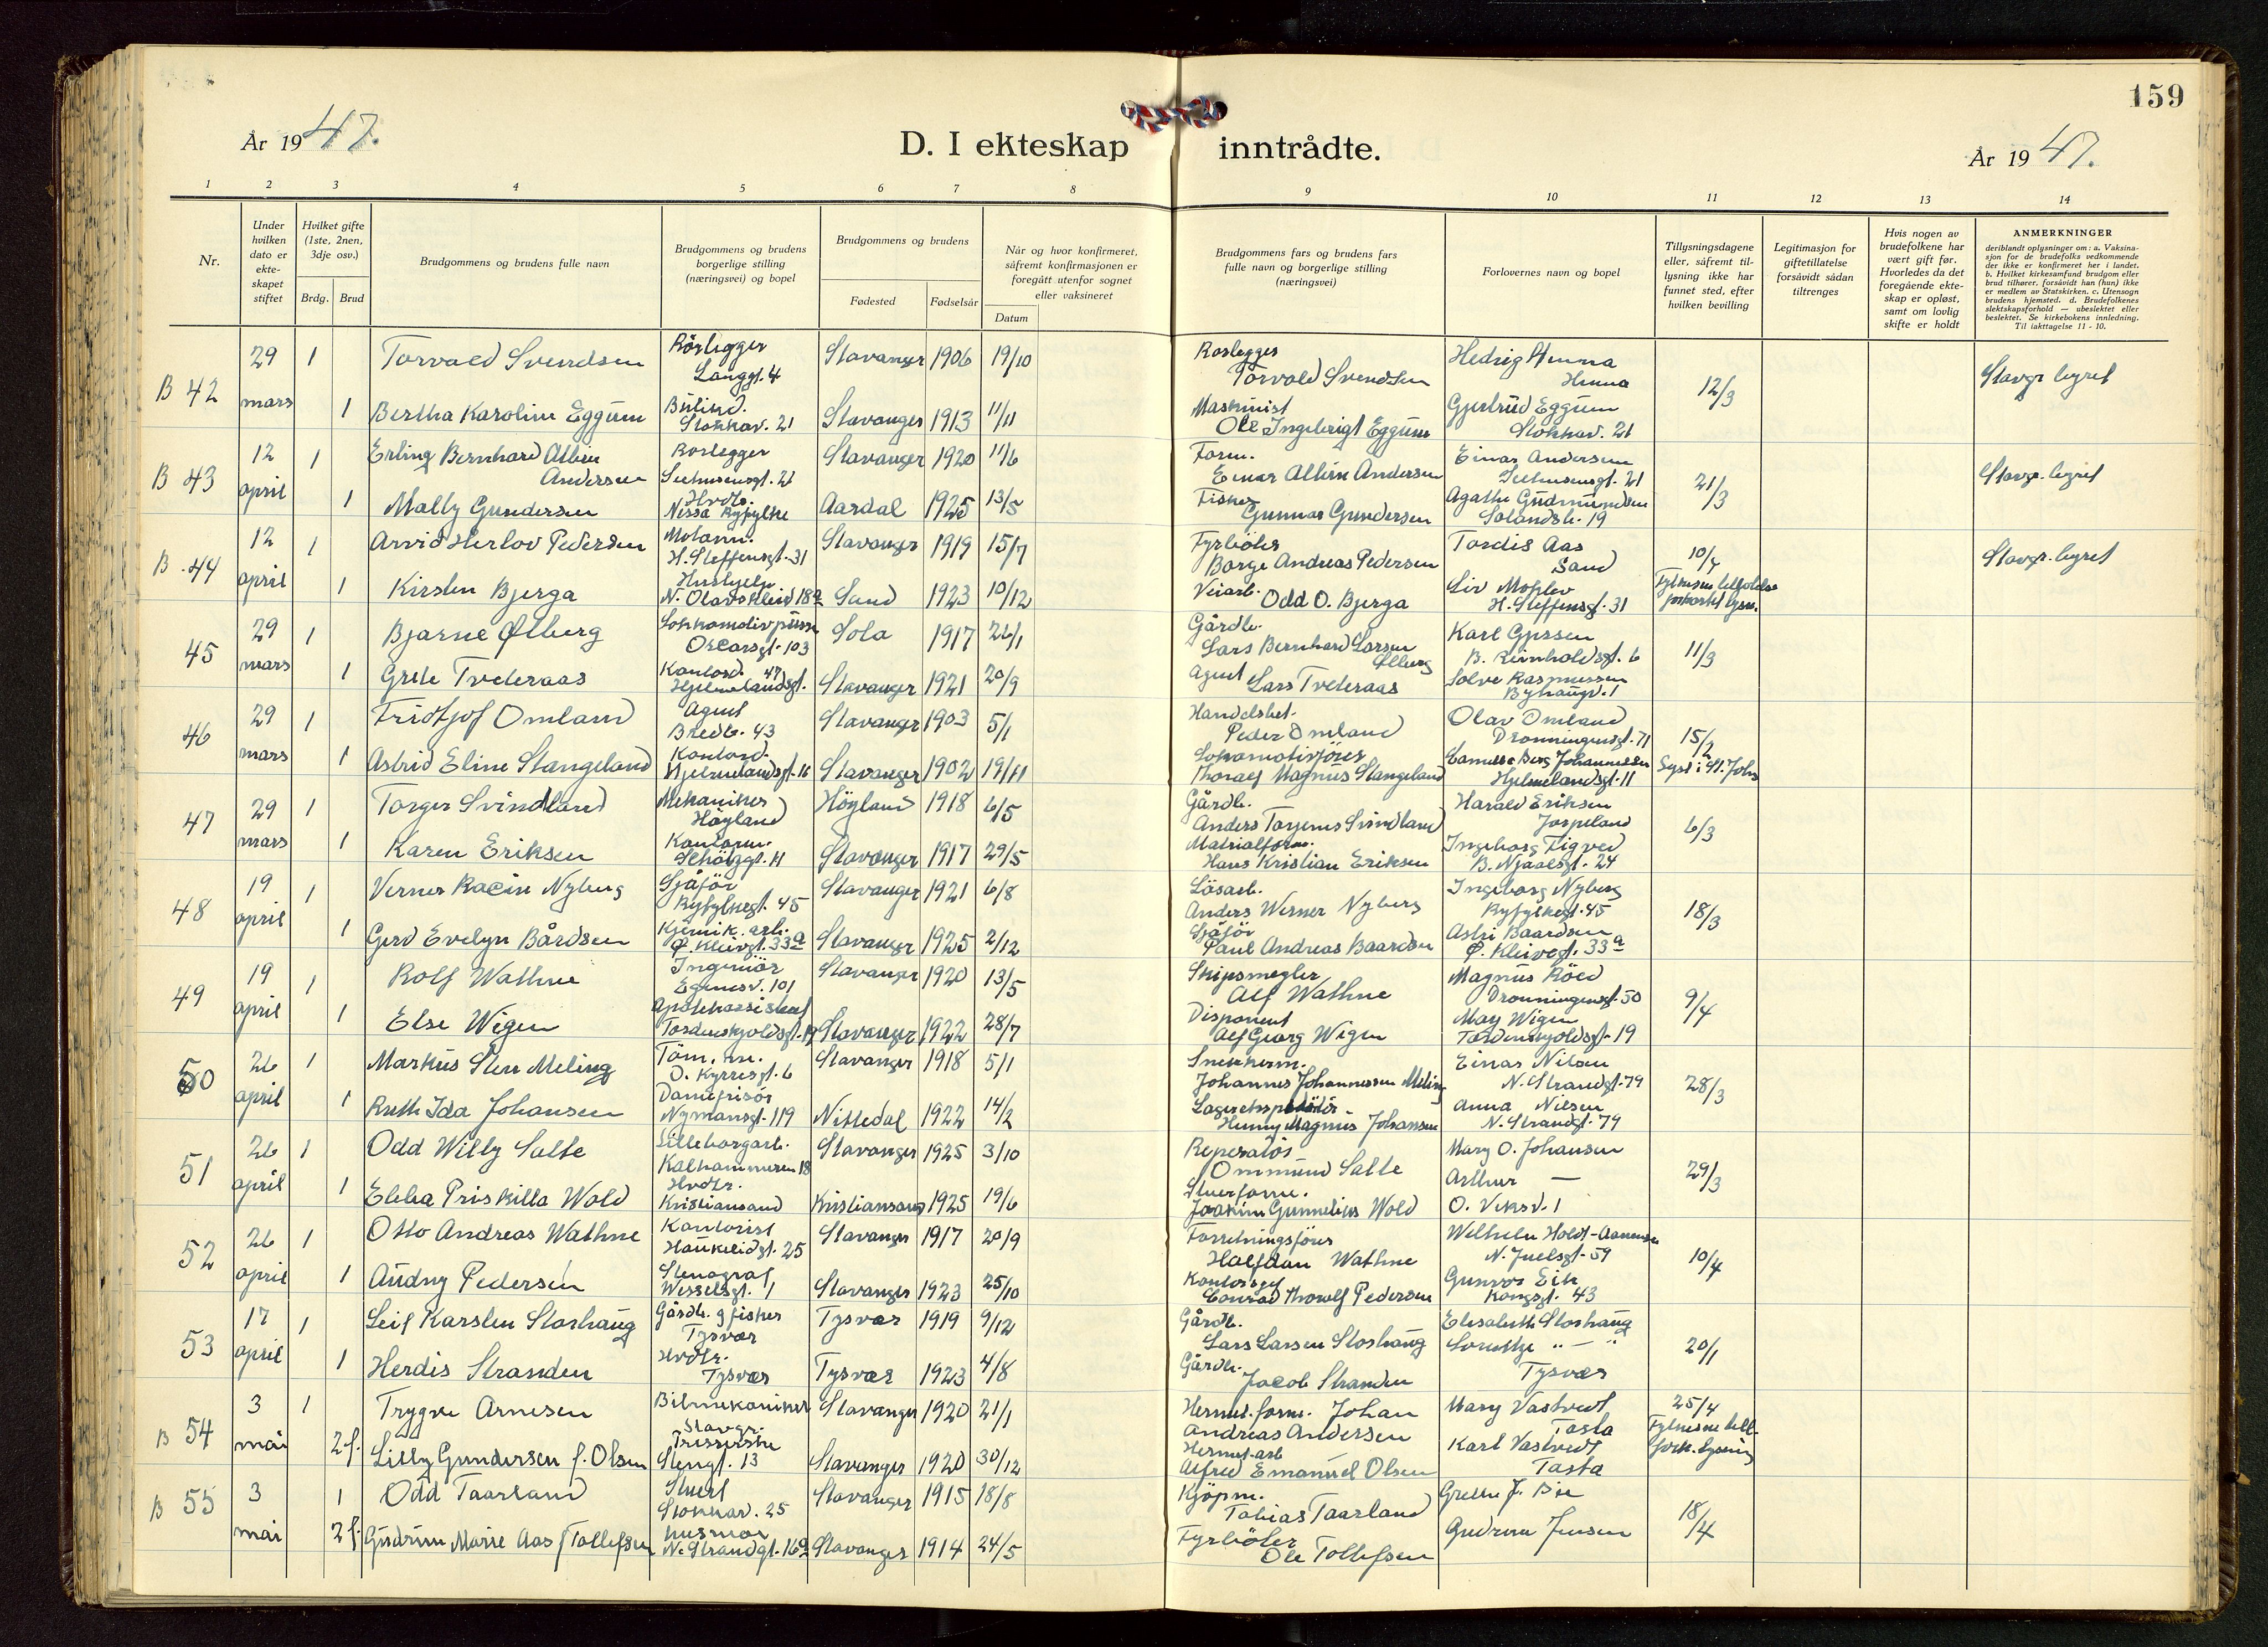 159
År 1947.
D. I ekteskap inntrådte.
År 1947.
1 2 3 4 5 6 7 8 9 10 11 12 13 14
Nr.
Under hvilken dato er ekte-skapet stiftet
Hvilket gifte (1ste, 2nen, 3dje osv.)
Brdg. Brud
Brudgommens og brudens fulle navn
Brudgommens og brudens borgerlige stilling (næringsvei) og bopel
Brudgommens og brudens
Fødested Fødselsår
Når og hvor konfirmeret, såfremt konfirmasjonen er foregått utenfor sognet eller vaksineret
Datum
Brudgommens fars og brudens fars fulle navn og borgerlige stilling (næringsvei)
Forlovernes navn og bopel
Tillysningsdagene eller, såfremt til-lysning ikke har funnet sted, efter hvilken bevilling
Legitimasjon for giftetillatelse forsåvidt sådan tiltrenges
Hvis nogen av brudefolkene har vært gift før. Hvorledes da det foregående ekte-skap er opløst, samt om lovlig skifte er holdt
ANMERKNINGER
deriblandt oplysninger om: a. Vaksina-sjon for de brudefolks vedkommende der ikke er konfirmeret her i landet. b. Hvilket kirkesamfund brudgom eller brud tilhører, forsåvidt han (hun) ikke er medlem av Statskirken. c. Utensogn brudens hjemsted. d. Brudefolkenes slektskapsforhold — ubeslektet eller beslektet. Se kirkebokens innledning. Til iakttagelse 11 - 10.
B 42 29 mars 1 Torvald Svendsen Rörlegger Langgt. 4 Stavanger 1906 19/10 Rorlegger Torvald Svendsen Hedvig Hinna Hinna 12/3 Stavgr. byret
1 Bertha Karoline Eggum Stokkav. 21 Stavanger 1913 11/11 Maskinist Ole Ingebrigt Eggum Gjertrud Eggum Stokkav. 21
B 43 12 april 1 Erling Bernhard Albin Andersen Rorlegger 21 Stavanger 1920 11/6 Form. Einar Albin Andersen Einar Andersen 21 21/3 Stavgr. byret
1 Mally Gundersen Hvdtr. Nessa Ryfylke Aardal 1925 13/5 Fisker Gunnar Gundersen Agathe Gudmundsen Solandsb. 19
B 44 12 april 1 Arvid Herlov Pedersen H. Steffensgt. 31 Stavanger 1919 15/7 Fyrböter Borge Andreas Pedersen Tordis Aas Sand 10/4 Stavgr. byret
1 Kirsten Bjerga Hushjelp N. Olavskleiv 18a Sand 1923 10/12 Veiarb. Odd O. Bjerga Liv H. Steffensgt. 31
45 29 mars 1 Bjarne Ølberg Oscarsgt. 103 Sola 1917 Gårdb. Lars Bernhard Larsen Ølberg Karl B. Reinholdsgt. 6 11/3
1 Grete Tvederaas Kontord. Hjelmelandsgt. 47 Stavanger 1921 20/9 Agent Lars Tvederaas Solve Rasmussen Byhaugv. 1
46 29 mars 1 Fridtjof Omland Agent Bredb. 43 Stavanger 1903 5/1 Peder Omland Olav Omland Dronningensgt. 71 15/2
1 Astrid Eline Stangeland Kontord. Hjelmelandsgt. 11 Stavanger 1902 19/11 Lokomotivförer Thoralf Magnus Stangeland Berg Johannessen Hjelmelandsgt. 11 Lyst i St. Johs
47 29 mars 1 Torger Svindland Mekaniker Höyland Höyland 1918 6/5 Gårdb. Anders Torjerus Svindland Harald Eriksen Jorpeland 6/3
1 Karen Eriksen Stavanger 1917 29/5 Hans Kristian Eriksen Ingeborg Tigved B. Njaalsgt. 24
48 19 april 1 Verner Racin Nyberg Sjåför Ryfylkegt. 45 Stavanger 1921 6/8 Lösarb. Anders Werner Nyberg Ingeborg Nyberg Ryfylkegt. 45 18/3
1 Gerd Evelyn Bårdsen Kjemik. arb. Ø. Kleivgt. 33a Stavanger 1925 2/12 Sjåför Paul Andreas Baardsen Astri Baardsen Ø. Kleivgt. 33a
49 19 april 1 Rolf Wathne Ingeniör Egenesv. 101 Stavanger 1920 13/5 Skipsmegler Alf Wathne Magnus Röed Dronningensgt. 50 9/4
1 Else Wigen Apotekassistent Tordenskjoldsgt. 19 Stavanger 1922 28/7 Disponent Alf Georg Wigen May Wigen Tordenskjoldsgt. 19
50 26 april 1 Markus Sten Meling Töm. m. O. Kyrresgt. 6 Stavanger 1918 5/1 Snekkerm. Johannes Johannessen Meling Einar Nilsen N. Strandgt. 79 28/3
1 Ruth Ida Johansen Damefrisör Nymansgt. 119 Nittedal 1922 14/2 Henny Magnus Johansen Anna Nilsen N. Strandgt. 79
51 26 april 1 Odd Willy Salte Lilleborgarb. Kalhammeren 18 Stavanger 1925 3/10 Reperatör Ommund Salte Mary O. Johansen 29/3
1 Ebba Priskilla Wold Hvdtr. Kristiansand Kristiansand 1925 19/6 Stuerform. Joakim Gunnelius Wold Arthur — O. Veksv. 1
52 26 april 1 Otto Andreas Wathne Kontorist Haukeligt. 25 Stavanger 1917 20/9 Forretningsförer Halfdan Wathne Wilhelm Holdt-Aanensen N. Juelsgt. 59 10/4
1 Audny Pedersen Stenograf Wesselsgt. 1 Stavanger 1923 25/10 Kontorsjef Conrad Thorolf Pedersen Gunvor Eik Kongsgt. 43
53 17 april 1 Leif Karsten Storhaug Gårdb. og fisker Tysvær Tysvær 1919 9/12 Gårdb. Lars Larsen Storhaug Elisabeth Storhaug 20/1
1 Herdis Stranden Hvdtr. Tysvær Tysvær 1923 4/8 Gårdb. Jacob Stranden " — " Tysvær
B 54 3 mai 1 Trygve Arnesen Bilmekaniker Stavgr. Stavanger 1920 21/1 Hermet. form. Johan Andreas Andersen Mary Vastvedt Tasta 25/4
2 f. Lilly Gundersen f. Olsen Stengt. 13 Stavanger 1920 30/12 Hermet. arb Alfred Emanuel Olsen Karl Vastvedt Tasta
B 55 3 mai 1 Odd Taarland Stuert Stokkav. 25 Stavanger 1915 18/8 Kjöpm. Tobias Taarland Grethe J. Bie 18/4
2 f. Gudrun Marie Aas f Tollefsen Husmor N. Strandgt. 16a Stavanger 1914 24/5 Fyrböter Ole Tollefsen Gudrun Jensen